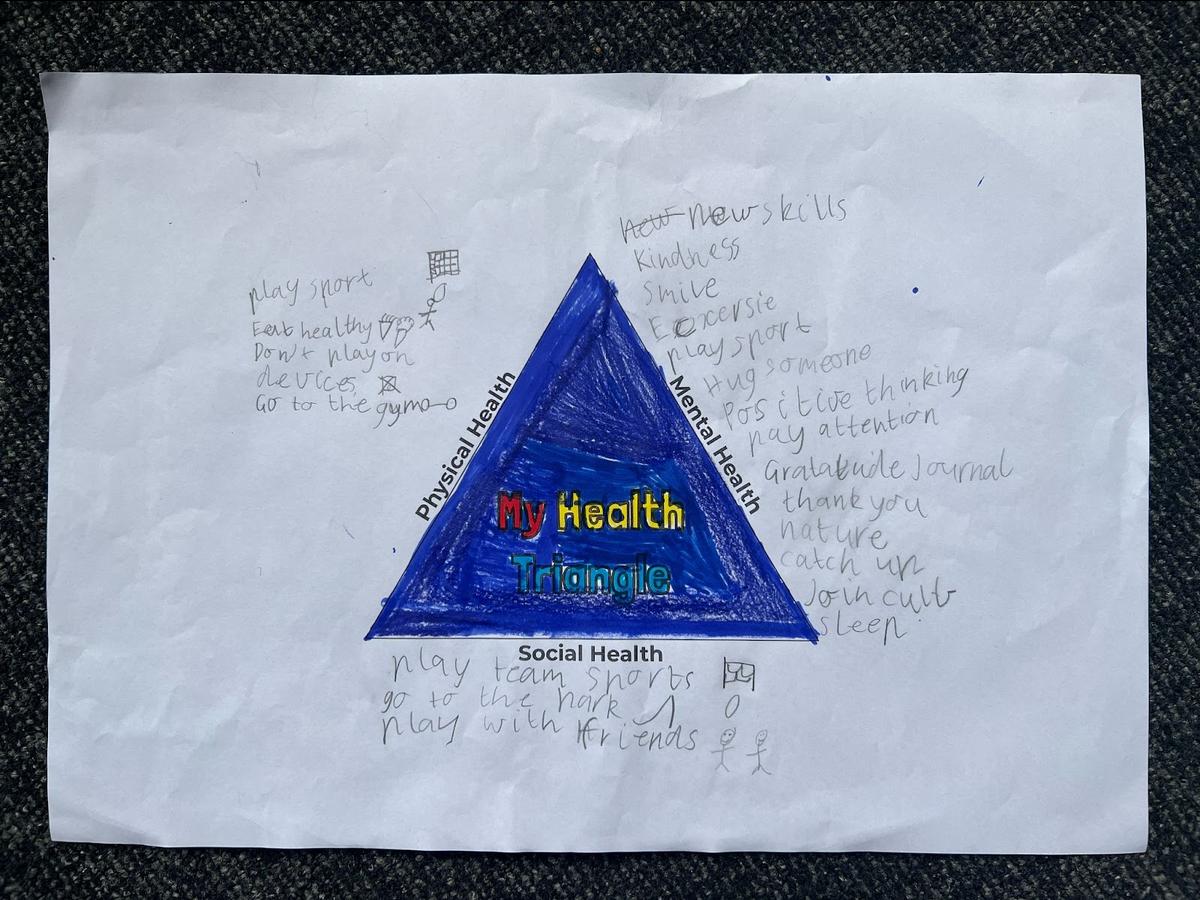 new New skills
Kindness
Smile
Excersie
play sport
Hug someone
positive thinking
pay attention
Gratabude Journal
thank you
nature
catch up
Join cult
sleep
play sport
Eat healthy
Don't play on
devices
Go to the gym
Physical Health
Mental Health
My Health
Triangle
Social Health
play team sports
go to the park
play with friends